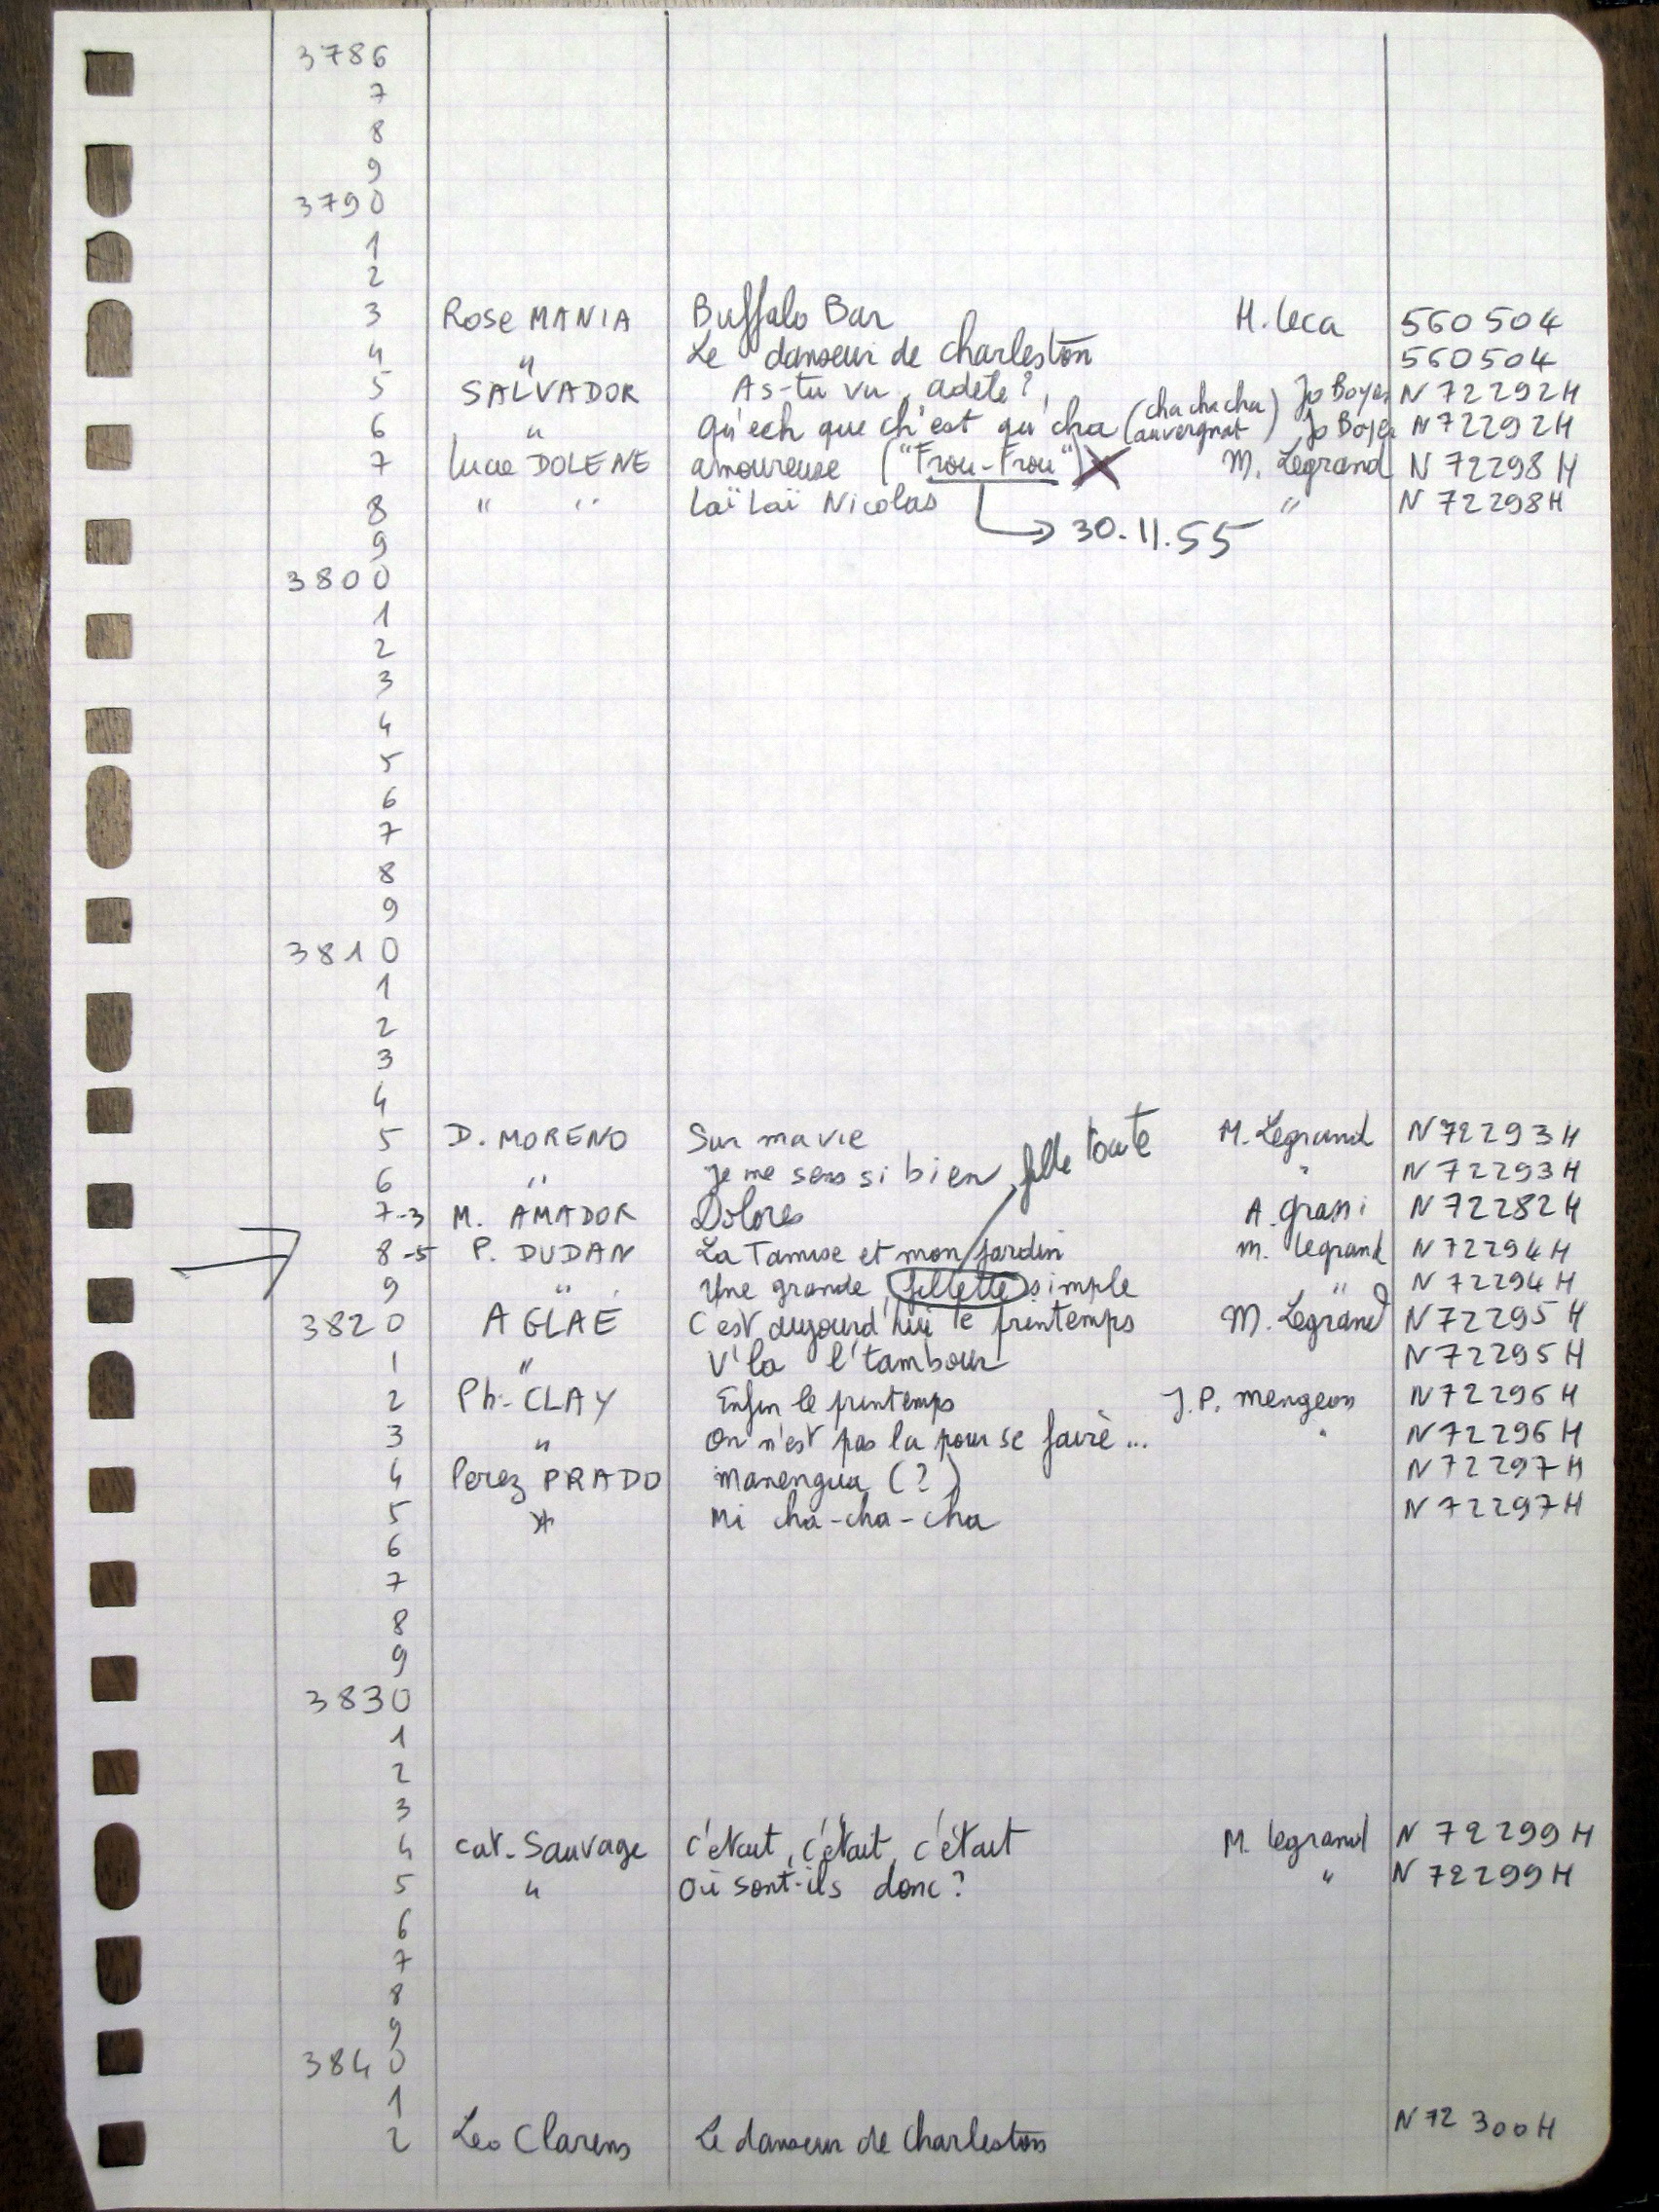 3786
7
8
9
3790
1
2
3 Rose MANIA Buffalo Bar H. Leca 560504
4 " Le danseur de charleston 560504
5 SALVADOR As-tu vu, adèle ? Jo Boyer N 72292H
6 " Qu'ech que ch'est qu'cha (cha cha cha auvergnat) Jo Boyer N 72292H
7 Lucie DOLENE amoureuse ("Frou-Frou") X M. Legrand N 72298 H
8 " " Laï Laï Nicolas " N 72298H
9 → 30.11.55
3800
1
2
3
4
5
6
7
8
9
3810
1
2
3
4
5 D. MORENO Sur ma vie M. Legrand N 72293 H
6 " Je me sens si bien " N 72293H
fille toute
7-3 M. AMADOR Dolores A. Grassi N 72282H
8-5 P. DUDAN La Tamise et mon jardin M. Legrand N 72294H
9 " Une grande fillette simple " N 72294H
3820 AGLAÉ C'est aujourd'hui le printemps M. Legrand N 72295 H
1 " V'la l'tambour N 72295H
2 Ph. CLAY Enfin le printemps J.P. Mengeon N 72296 H
3 " On n'est pas la pour se faire ... " N 72296H
4 Perez PRADO Manengua (?) N 72297H
5 " Mi cha-cha-cha N 72297H
6
7
8
9
3830
1
2
3
4 Cat. Sauvage C'était, c'était, c'était M. Legrand N 72299H
5 " Où sont-ils donc ? " N 72299H
6
7
8
9
3840
1
2 Leo Clarens Le danseur de Charleston N 72 300H